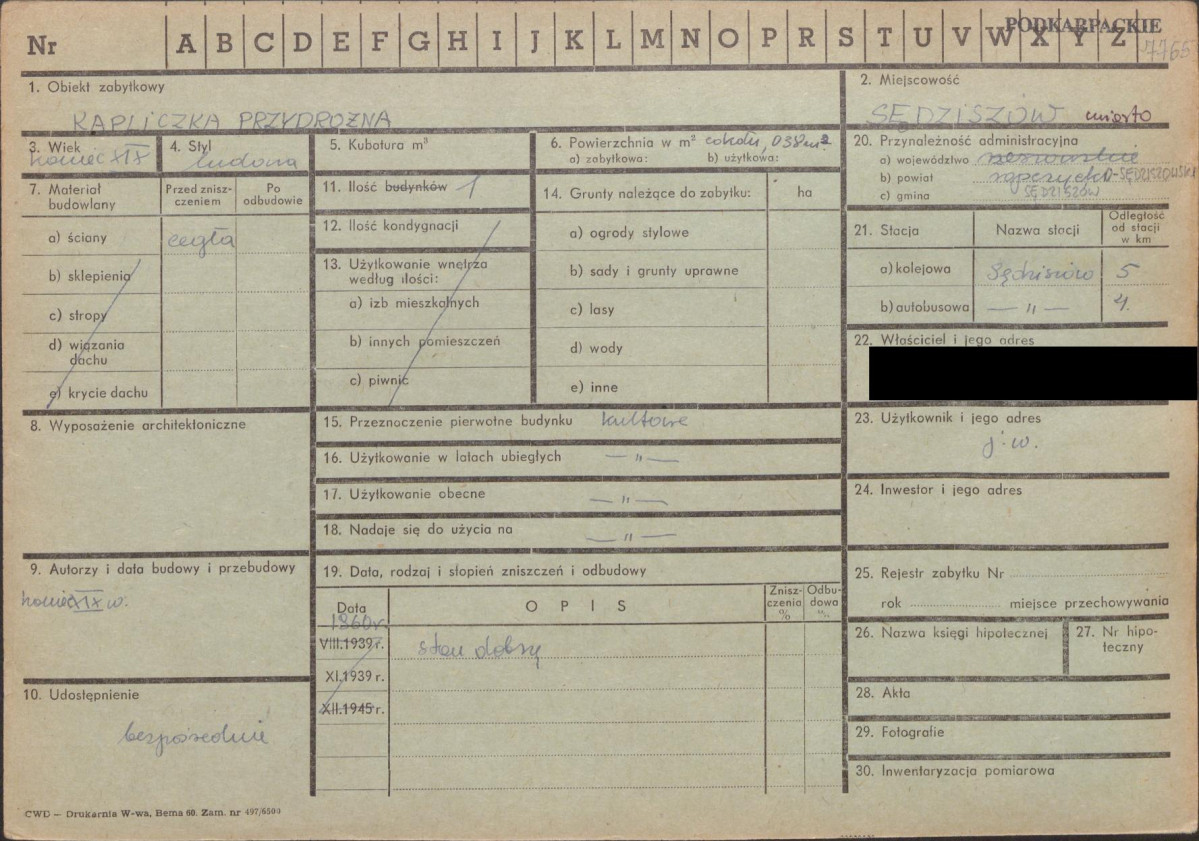 PODKARPACKIE
Nr A B C D E F G H I J K L M N O P R S T U V W X Y Z
7765
1. Obiekt zabytkowy
KAPLICZKA PRZYDROŻNA
2. Miejscowość
SĘDZISZÓW miasto
3. Wiek
koniec XIX
4. Styl
ludowa
5. Kubatura m³
6. Powierzchnia w m² cokołu, 0,38 m²
a) zabytkowa: b) użytkowa:
20. Przynależność administracyjna
a) województwo rzeszowskie
b) powiat ropczycko-SĘDZISZOWSKI
c) gmina SĘDZISZÓW
7. Materiał budowlany
Przed zniszczeniem
Po odbudowie
a) ściany cegła
b) sklepienia
c) stropy
d) wiązania dachu
e) krycie dachu
11. Ilość budynków 1
12. Ilość kondygnacji
13. Użytkowanie wnętrza według ilości:
a) izb mieszkalnych
b) innych pomieszczeń
c) piwnic
14. Grunty należące do zabytku: ha
a) ogrody stylowe
b) sady i grunty uprawne
c) lasy
d) wody
e) inne
21. Stacja Nazwa stacji Odległość od stacji w km
a) kolejowa Sędziszów 5
b) autobusowa — " — 4
22. Właściciel i jego adres
8. Wyposażenie architektoniczne
15. Przeznaczenie pierwotne budynku kultowe
16. Użytkowanie w latach ubiegłych — " —
17. Użytkowanie obecne — " —
18. Nadaje się do użycia na — " —
23. Użytkownik i jego adres
j.w.
24. Inwestor i jego adres
9. Autorzy i data budowy i przebudowy
koniec XIX w.
19. Data, rodzaj i stopień zniszczeń i odbudowy
Data OPIS Zniszczenia % Odbudowa %
1960 r.
VIII.1939 r. stan dobry
XI.1939 r.
XII.1945 r.
25. Rejestr zabytku Nr
rok miejsce przechowywania
26. Nazwa księgi hipotecznej
27. Nr hipoteczny
10. Udostępnienie
bezpośednie
28. Akta
29. Fotografie
30. Inwentaryzacja pomiarowa
CWD — Drukarnia W-wa, Bema 60. Zam. nr 497/6500